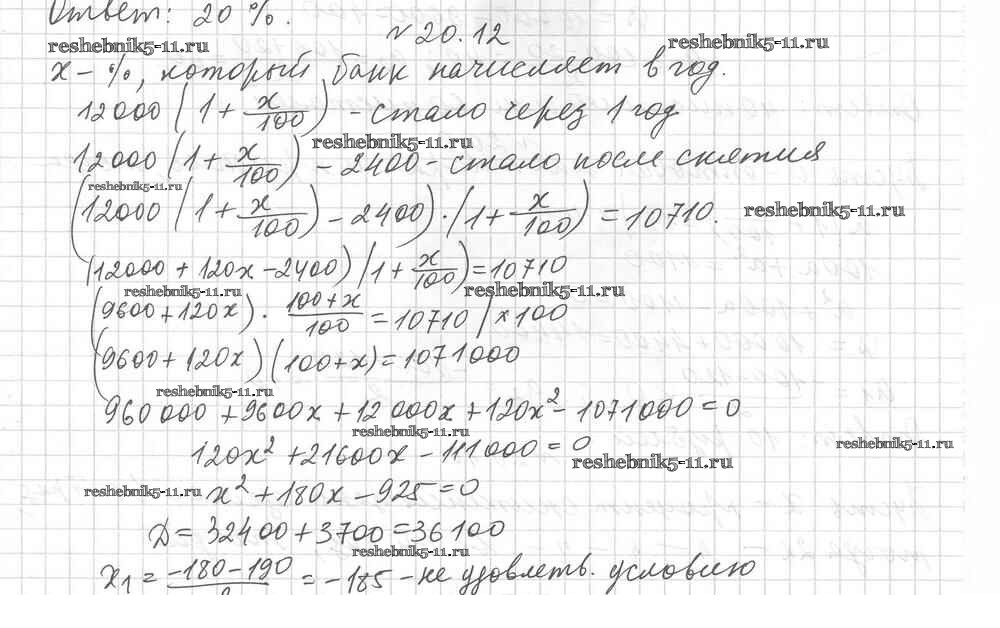 Ответ: 20 %.
№ 20.12
reshebnik5-11.ru
reshebnik5-11.ru
x - %, который банк начисляет в год.
12000 (1 + x/100) - стало через 1 год
reshebnik5-11.ru
12000 (1 + x/100) - 2400 - стало после снятия
reshebnik5-11.ru
(12000 (1 + x/100) - 2400) · (1 + x/100) = 10710.
reshebnik5-11.ru
(12000 + 120x - 2400) (1 + x/100) = 10710
reshebnik5-11.ru
reshebnik5-11.ru
(9600 + 120x) · (100 + x)/100 = 10710 | × 100
(9600 + 120x) (100 + x) = 1071000
reshebnik5-11.ru
960000 + 9600x + 12000x + 120x² - 1071000 = 0
reshebnik5-11.ru
reshebnik5-11.ru
120x² + 21600x - 111000 = 0
reshebnik5-11.ru
reshebnik5-11.ru
x² + 180x - 925 = 0
D = 32400 + 3700 = 36100
reshebnik5-11.ru
x₁ = (-180 - 190)/2 = -185 - не удовлетв. условию